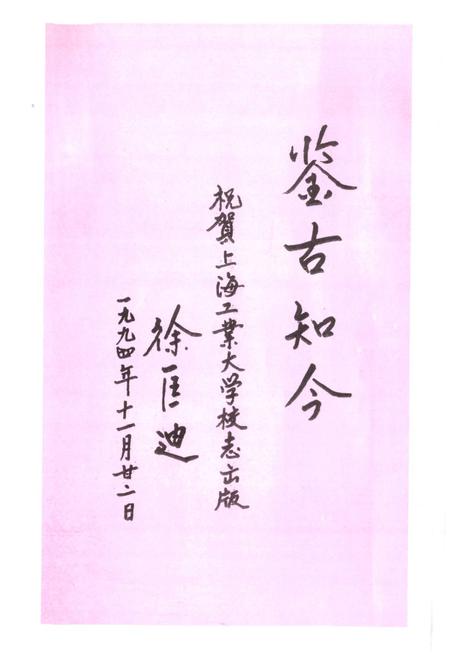 鉴古知今
祝賀上海工業大学校志出版
徐匡迪
一九九四年十一月廿二日